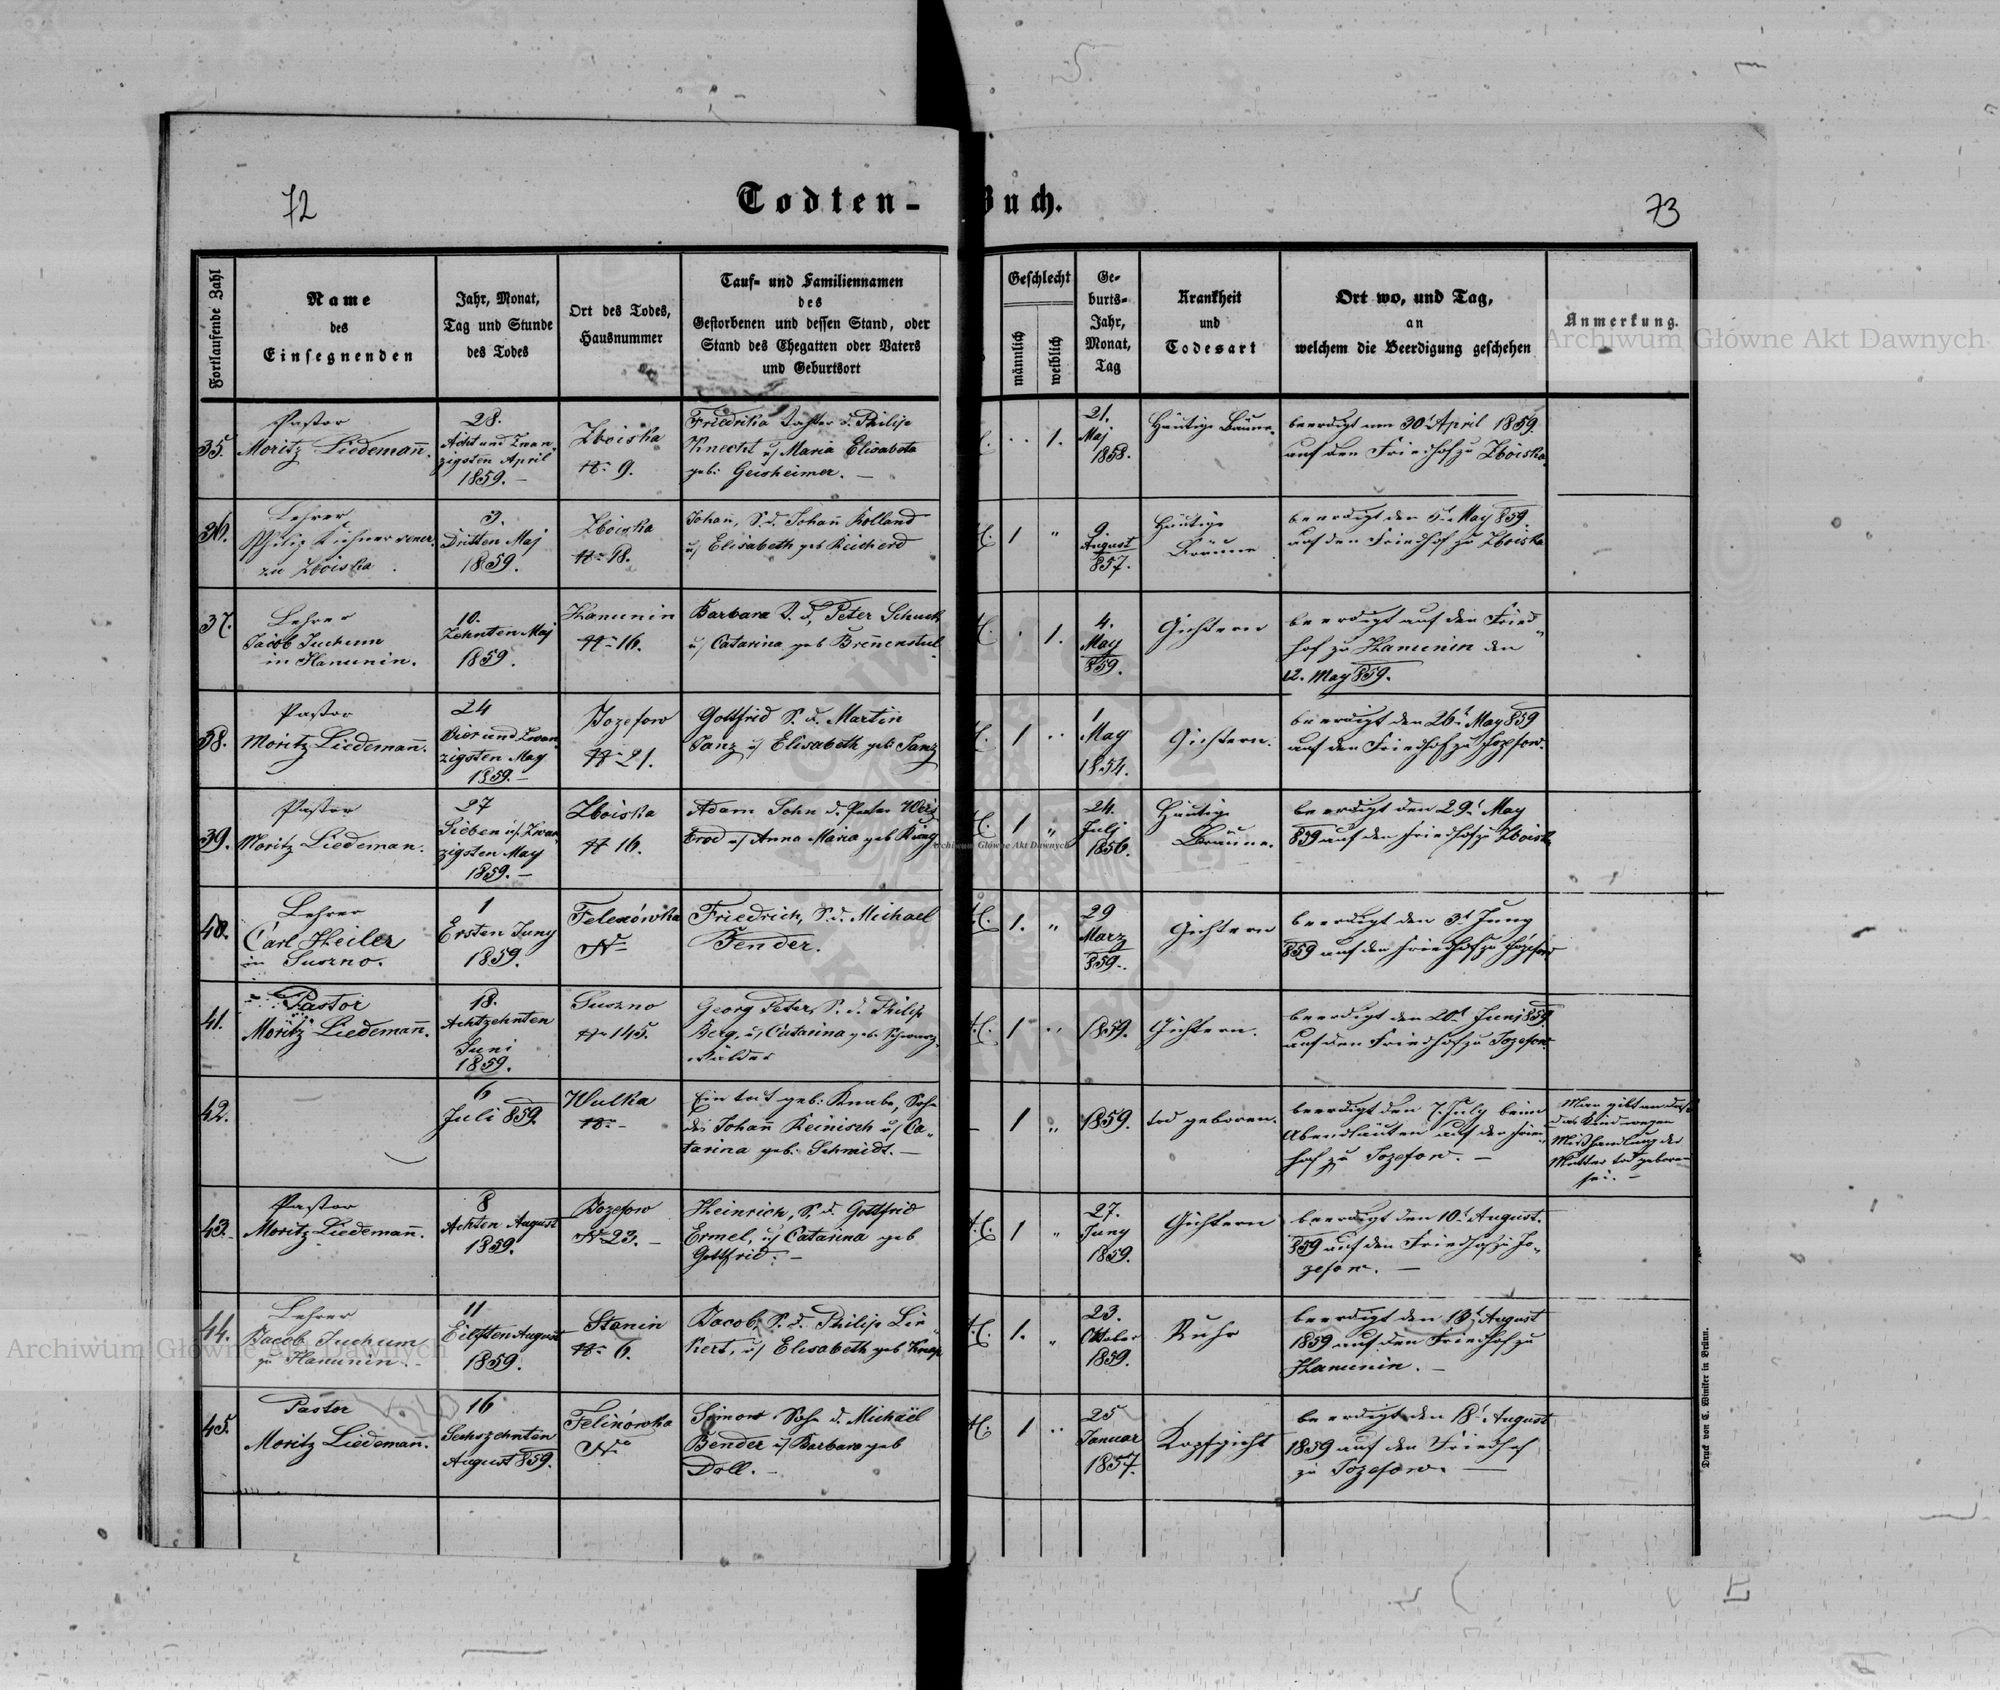 72
Todten-Buch.
73
Fortlaufende Zahl
Name
des
Einsegnenden
Jahr, Monat,
Tag und Stunde
des Todes
Ort des Todes,
Hausnummer
Tauf- und Familiennamen
des
Gestorbenen und dessen Stand, oder
Stand des Ehegatten oder Vaters
und Geburtsort
Geschlecht
männlich
weiblich
Ge-
burts-
Jahr,
Monat,
Tag
Krankheit
und
Todesart
Ort wo, und Tag,
an
welchem die Beerdigung geschehen
Anmerkung.
35.
Pastor
Moritz Liedemañ.
28.
Acht und Zwan
zigsten April
1859.
Zboiska
N 9.
Friedrika Tochter d. Philip
Knecht u/ Maria Elisabeta
geb: Geisheimer.
1.
21.
Maj
1858.
Häutige Bäune.
beerdigt am 30t April 1859.
auf den Friedhof zu Zboiska.
36.
Lehrer
zu Zboiska
3.
Dritten Maj
1859.
Zboiska
N 18.
Johañ, S. d. Johañ Kolland
u/ Elisabeth geb
1
9
August
857.
Häutige
Bräune
beerdigt den 5t May 859.
auf den Friedhof zu Zboiska
37.
Lehrer
Jacob Juchum
in Hanunin.
10.
Zehnten Maj
1859.
Hanunin
N 16.
Barbara T. d. Peter Schuck
u/ Catarina geb Breñenstuel
1.
4.
May
859.
Gichtern
beerdigt auf den Fried
hof zu Hanunin den
12. May 859.
38.
Pastor
Moritz Liedemañ.
24
Vier und Zwan
zigsten May
1859.
Jozefow
N 21.
Gottfried S. d. Martin
Janz u/ Elisabeth geb Janz
1
1
May
1854.
Gichtern.
beerdigt den 26t May 859
auf den Friedhof zu Jozefow.
39.
Pastor
Moritz Liedeman.
27
Sieben u/ Zwan
zigsten May
1859.
Zboiska
N 16.
Adam Sohn d. Peter Weis
brod u/ Anna Maria geb King
1
24.
Julj
1856.
Häutige
Bräune.
beerdigt den 29t May
859 auf den Friedhof zu Zboiska
40.
Lehrer
Carl Heiler
in Suszno.
1
Ersten Juny
1859.
Felexówka
N
Friedrich, S. d. Michael
Bender.
1.
29
Marz
859.
Gichtern
beerdigt den 3t Juny
859 auf den Friedhof zu Józefow
41.
Pastor
Moritz Liedemañ.
18.
Achtzehnten
Juni
1859.
Suszno
N 145.
Georg Peter, S. d. Philip
Berg, u/ Catarina geb. Schwarz
wälder
1
1859.
Gichtern.
beerdigt den 20t Juni 859.
auf den Friedhof zu Jozefow.
42.
6
Juli 859.
Wulka
N
Ein tod geb: Knabe, Sohn
des Johañ Reinisch u/ Ca-
tarina geb: Schmidt.
1
1859.
tod geboren.
beerdigt den 7. July beim
Abendläuten auf den Fried-
hof zu Jozefow.
Man gibt an daß
das Kind wegen
Mißhandlung der
Mutter tod geboren
sei.
43.
Pastor
Moritz Liedemañ.
8
Achten August
1859.
Jozefow
N 23.
Heinrich, S. d. Gottfrid
Ermel, u/ Catarina geb
Gottfrid.
1
27.
Juny
1859.
Gichtern
beerdigt den 10t August.
859 auf den Friedhof zu Jo-
zefow.
44.
Lehrer
Jacob Juchum
zu Hanunin.
11
Eilften August
1859.
Stanin
N 6.
Jacob, S. d. Philip Lin
kert, u/ Elisabeth geb Knop
1.
23.
Oktober
1859.
Ruhr
beerdigt den 13t August
1859 auf den Friedhof zu
Hanunin.
45.
Pastor
Moritz Liedemañ.
16
Sechszehnten
August 859.
Felinówka
No
Simon Sohn d. Michaël
Bender u/ Barbara geb
Doll.
1
25
Januar
1857.
Kopfgicht
beerdigt den 18t August
1859 auf den Friedhof
zu Jozefow.
Druck von C. Winiker in Brünn.
Archiwum Główne Akt Dawnych
Archiwum Główne Akt Dawnych
Archiwum Główne Akt Dawnych